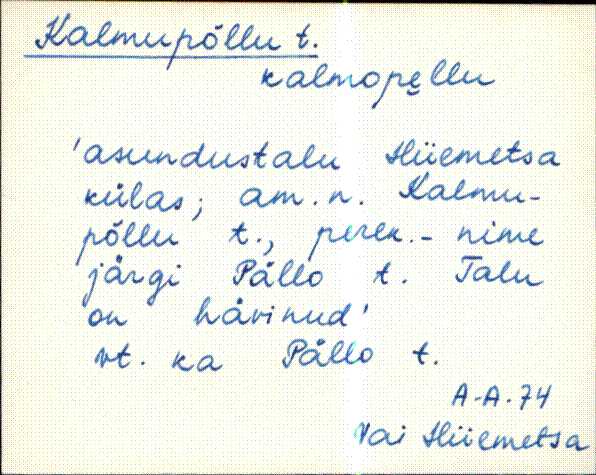 Kalmupõllu t.
kalmopẹllu
'asundustalu Hiiemetsa
külas; am.n. Kalmu-
põllu t., perek.- nime
järgi Pällo t. Talu
on hävinud'
vt. ka Pällo t.
A-A.74
Vai Hiiemetsa